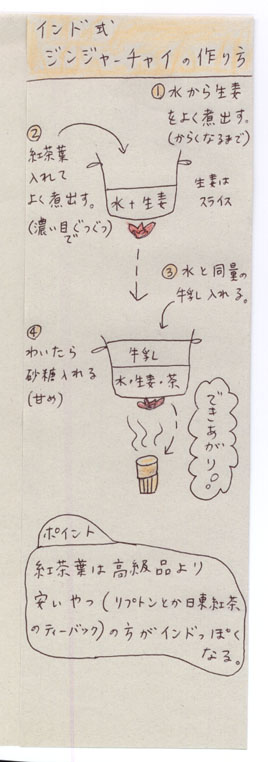 インド式
ジンジャーチャイの作り方
① 水から生姜
をよく煮出す。
(からくなるまで)
生姜は
スライス
②
紅茶葉
入れて
よく煮出す。
(濃い目ぐつぐつ
で)
水+生姜
③ 水と同量の
牛乳入れる。
④
わいたら
砂糖入れる
(甘め)
牛乳
水・生姜・茶
できあがり。
ポイント
紅茶葉は高級品より
安いやつ(リプトンとか日東紅茶
のティーバック)の方がインドっぽく
なる。